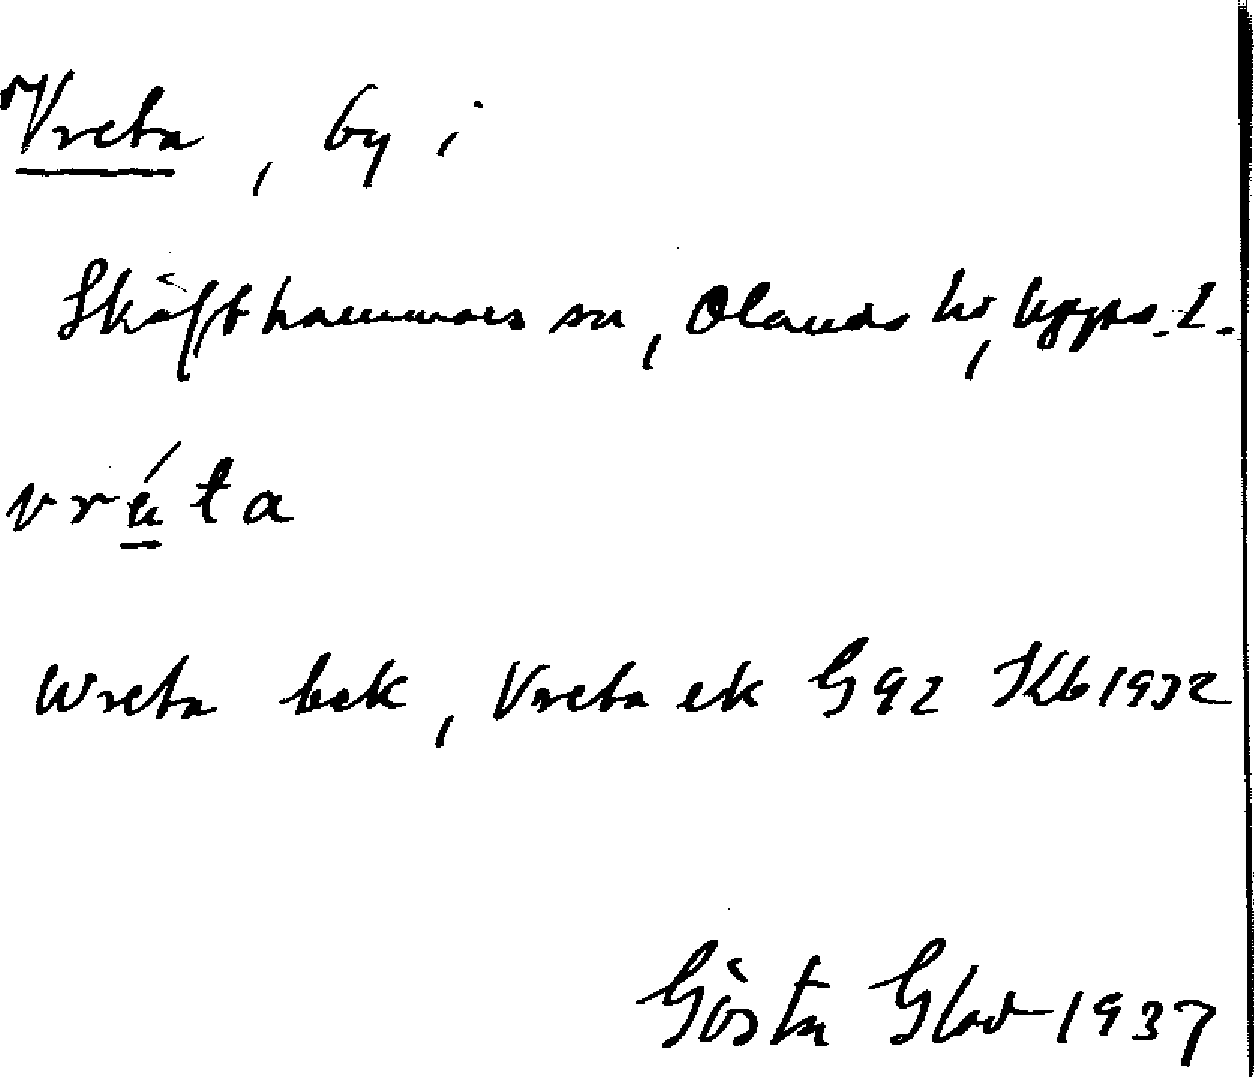 Vreta, by i
Skäfthammars sn, Olands hd, Uppss. l.
vrǽta
Wreta bek, Vreta ek G92 Kb 1932
Gösta 1937